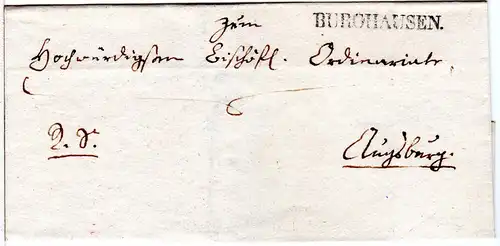 BURGHAUSEN.
Zum
Hochwürdigsten Bischöfl. Ordinariate
R. S.
Augsburg.